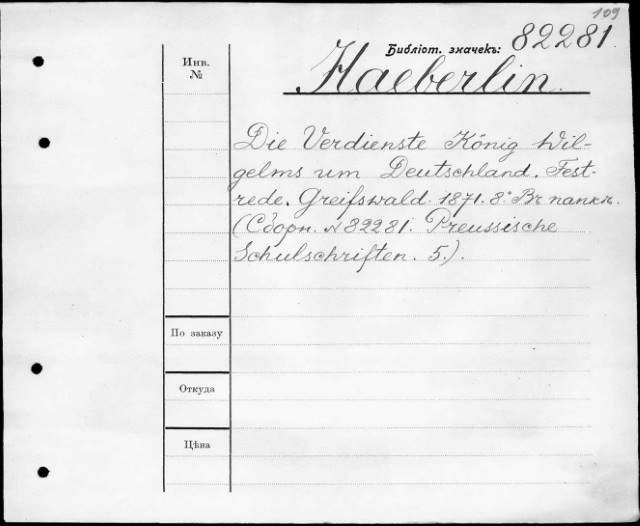 109
Библіот. значекъ: 82281.
Инв.
№
Haeberlin.
Die Verdienste König Wil-
gelms um Deutschland. Fest-
rede. Greifswald. 1871. 8° Въ папкѣ.
(Сборн. № 82281. Preussische
Schulschriften. 5.).
По заказу
Откуда
Цѣна